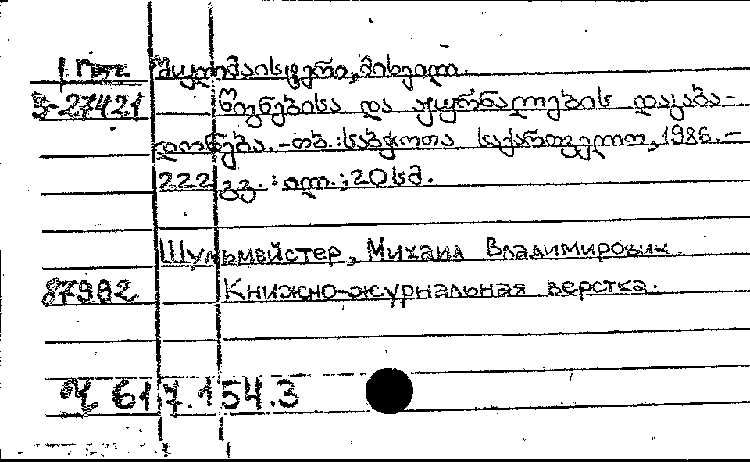 შულმაისტერი, მიხეილ.
3-27421 წიგნებისა და ჟურნალების დაკაბა-
დონება. -თბ.: საბჭოთა საქართველო, 1986.-
222 გვ. : ილ. ; 20 სმ.
Шульмейстер, Михаил Владимирович
87982 Книжно-журнальная верстка.
617.154.3